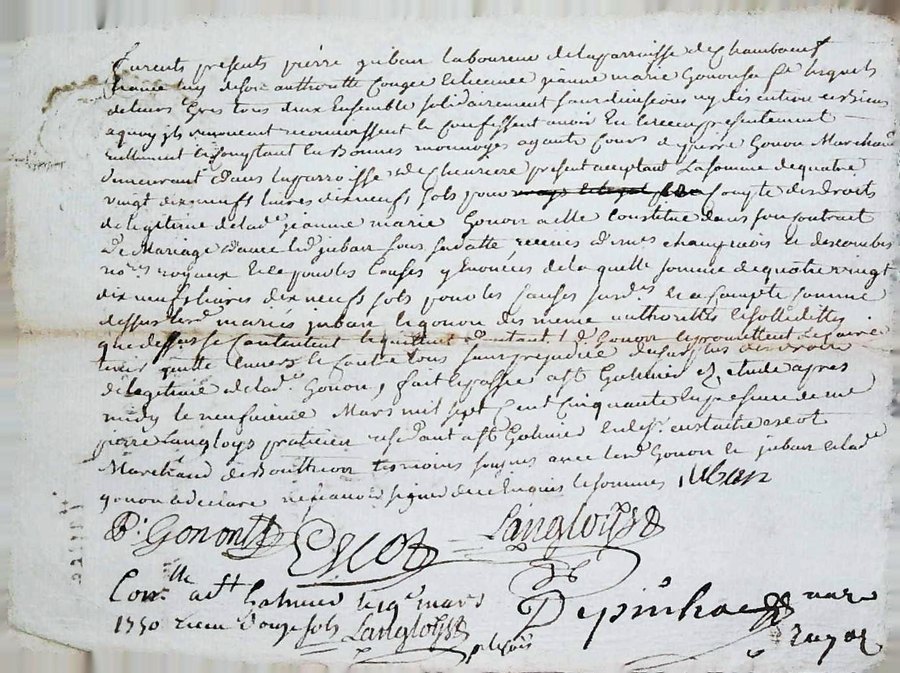 Furent présents pierre juban laboureur de la parroisse de Chamboeuf
france luy desoir authorité Congee et licenciee jeanne marie Gonon sa fe lesquels
de leurs Grés tous deux Ensemble solidairement sans division ny discution des biens
a quoy ils renoncent reconnoissent et Confessent avoir Eu et receu presentement
reellement et Comptant En Bonnes monnoyes ayants Cours de pierre Gonon Marchand
demeurant dans la parroisse de Chevriere present acceptant La somme de quatre
vingt dix neufs livres dix neufs sols pour Compte des Droits
de legitime de lade jeanne marie Gonon a elle Constitué dans son Contrat
De Mariage d'avec led juban sous sa datte receu es dines champrois et descombes
nores royaux et ce pour les Causes y Enoncées de laquelle somme de quatre vingt
dix neufs livres dix neufs sols pour les Causes sus des et a Compte comme
dessus lesd mariés juban et gonon des meme authorittés et solidittés
que dessus se Contentent et quittent d'autant led Gonon et promettent Le faire
tenir quitte Envers et Contre tous sans prejudice du surplus des droits
de legitime de lade Gonon, fait et passé a st Galmier Es étude apres
midy le neufvieme Mars mil sept Cent Cinquante En presence de me
pierre Langloys praticien residant a st Galmier et de sr eustache escot
Marchand de Bouttheon temoins soussés avec lesd Gonon et juban et lade
gonon a declaré ne scavoir signer de ce Enquis et sommés juban
P. Gonont Escot Langloys
Conlle a st Galmier le 19e mars
1750 receu Douze sols Langloys
Depinhac nore
royal